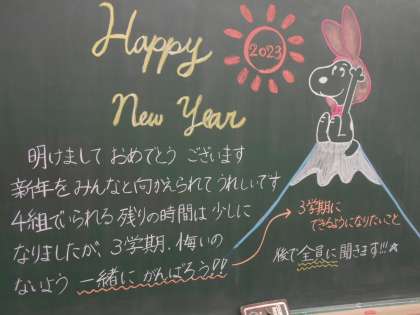 Happy
2023
New Year
明けまして おめでとう ございます
新年をみんなと向かえられてうれしいです
4組でいられる残りの時間は少しに
なりましたが、3学期、悔いの
ないよう 一緒に がんばろう!!
3学期に
できるようになりたいこと
後で全員に聞きます!!!☆